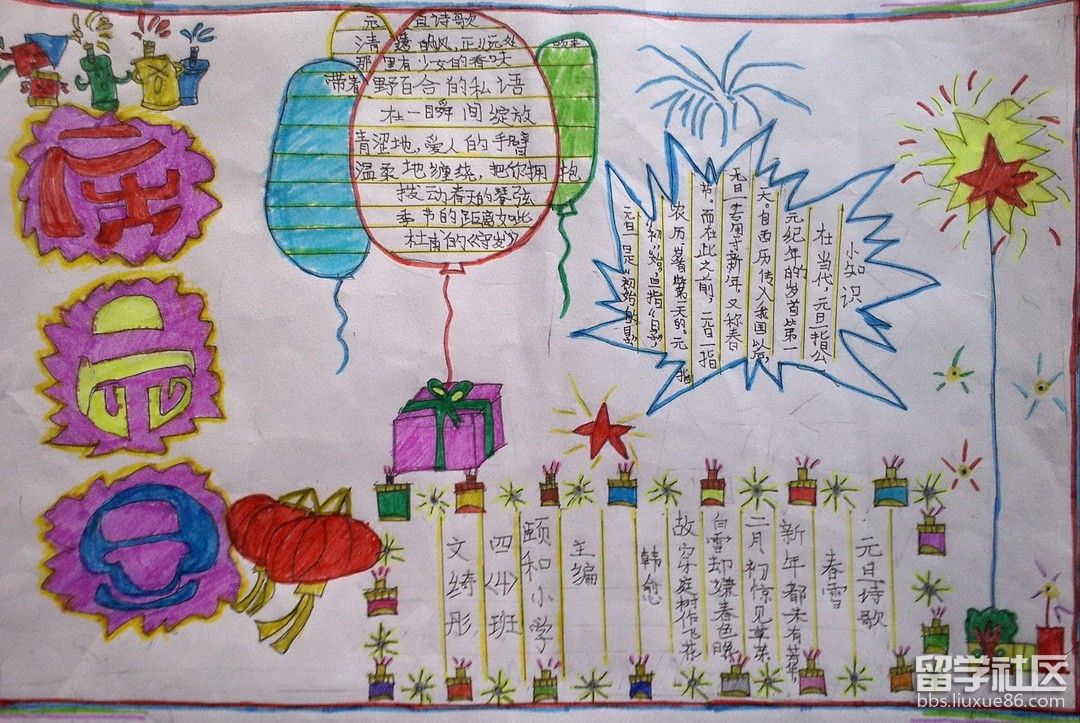 庆
元
旦
元旦诗歌
清透的风,正从远处
那里有少女的香味
带着野百合的私语
在一瞬间绽放
青涩地,爱人的手臂
温柔地缠绕,把你拥抱
拨动春天的琴弦
季节的距离如此
杜甫的《守岁》
小知识
在当代,元旦一指公
元纪年的岁首第一
天。自西历传入我国以后,
元旦一专用于新年,又称春
节。而在此之前,元旦一指
农历岁首第一天的。元
指“初”“始”,旦指“日”,
元旦一是“初始的日”
元旦诗歌
春雪
新年都未有芳华,
二月初惊见草芽
白雪却嫌春色晚
故穿庭树作飞花
韩愈
主编
颐和小学
四〈4〉班
文绮彤
留学社区
bbs.liuxue86.com